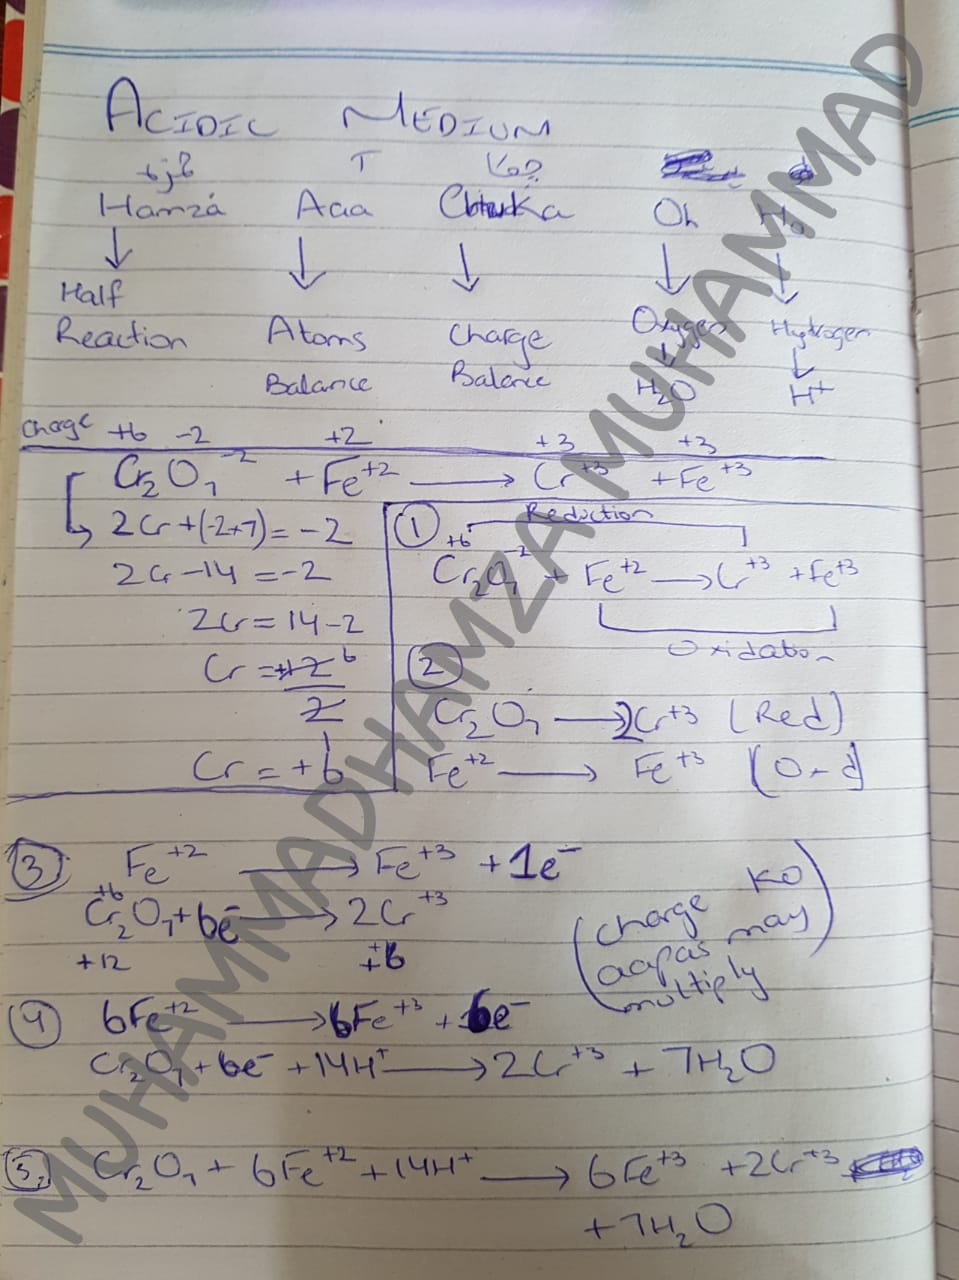 ACIDIC MEDIUM
Hamza Aaa Oh Ho
Half
Reaction Atoms Charge Oxygen Hydrogen
Balance Balance H₂O H⁺
Charge +6 -2 +2 +3 +3
Cr₂O₇⁻² + Fe⁺² → Cr⁺³ + Fe⁺³
2Cr+(-2+7)=-2
2Cr-14=-2
2Cr=14-2
Cr=+12 6
2
Cr=+6
① Reduction
+6
Cr₂O₇⁻² + Fe⁺² → Cr⁺³ + Fe⁺³
Oxidation
②
Cr₂O₇ → 2Cr⁺³ (Red)
Fe⁺² → Fe⁺³
③ Fe⁺² → Fe⁺³ + 1e⁻
+6
Cr₂O₇ + 6e⁻ → 2Cr⁺³
+12 +6
(charge KO
aapas may
multiply)
④ 6Fe⁺² → 6Fe⁺³ + 6e⁻
Cr₂O₇ + 6e⁻ + 14H⁺ → 2Cr⁺³ + 7H₂O
⑤ Cr₂O₇ + 6Fe⁺² + 14H⁺ → 6Fe⁺³ + 2Cr⁺³
+ 7H₂O
MUHAMMADHAMZA MUHAMMAD